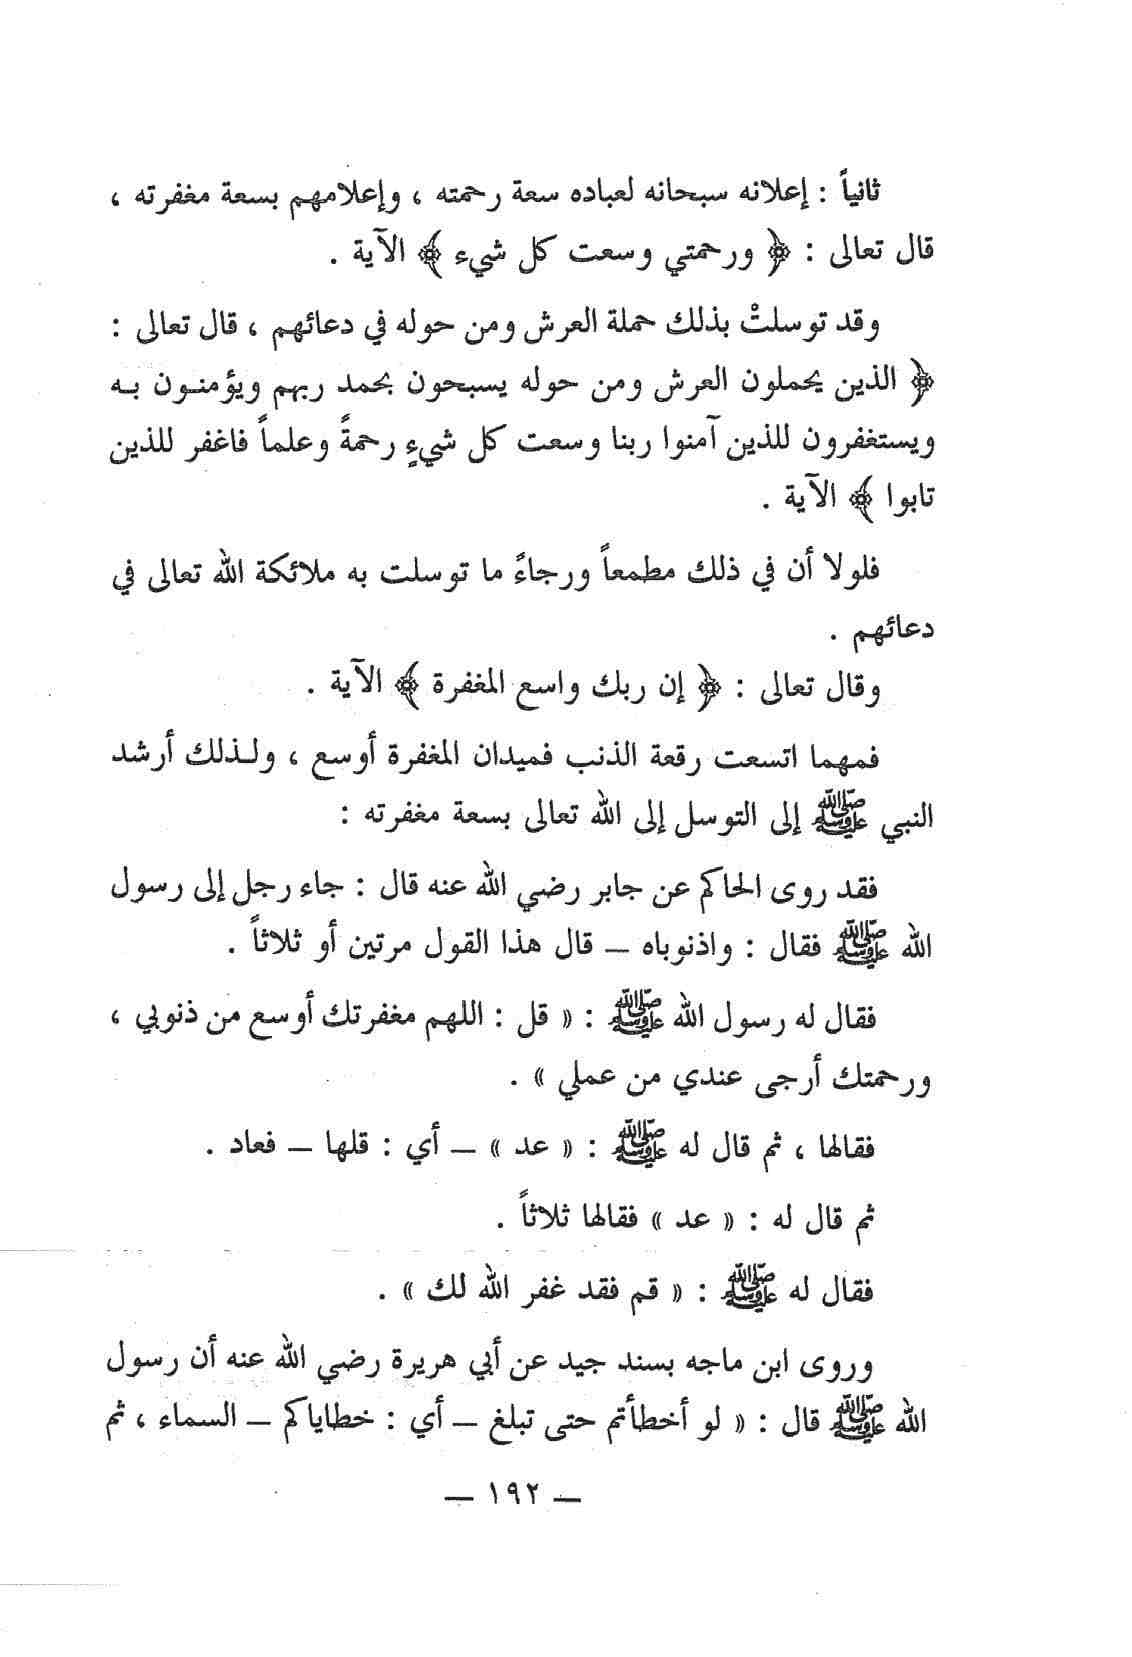 ثانياً : إعلانه سبحانه لعباده سعة رحمته ، وإعلامهم بسعة مغفرته ،
قال تعالى : ﴿ ورحمتي وسعت كل شيء ﴾ الآية .
وقد توسلتْ بذلك حملة العرش ومن حوله في دعائهم ، قال تعالى :
﴿ الذين يحملون العرش ومن حوله يسبحون بحمد ربهم ويؤمنون به
ويستغفرون للذين آمنوا ربنا وسعت كل شيءٍ رحمةً وعلماً فاغفر للذين
تابوا ﴾ الآية .
فلولا أن في ذلك مطمعاً ورجاءً ما توسلت به ملائكة الله تعالى في
دعائهم .
وقال تعالى : ﴿ إن ربك واسع المغفرة ﴾ الآية .
فمهما اتسعت رقعة الذنب فميدان المغفرة أوسع ، ولذلك أرشد
النبي ﷺ إلى التوسل إلى الله تعالى بسعة مغفرته :
فقد روى الحاكم عن جابر رضي الله عنه قال : جاء رجل إلى رسول
الله ﷺ فقال : واذنوباه — قال هذا القول مرتين أو ثلاثاً .
فقال له رسول الله ﷺ : « قل : اللهم مغفرتك أوسع من ذنوبي ،
ورحمتك أرجى عندي من عملي » .
فقالها ، ثم قال له ﷺ : « عد » — أي : قلها — فعاد .
ثم قال له : « عد » فقالها ثلاثاً .
فقال له ﷺ : « قم فقد غفر الله لك » .
وروى ابن ماجه بسند جيد عن أبي هريرة رضي الله عنه أن رسول
الله ﷺ قال : « لو أخطأتم حتى تبلغ — أي : خطاياكم — السماء ، ثم
— ١٩٢ —